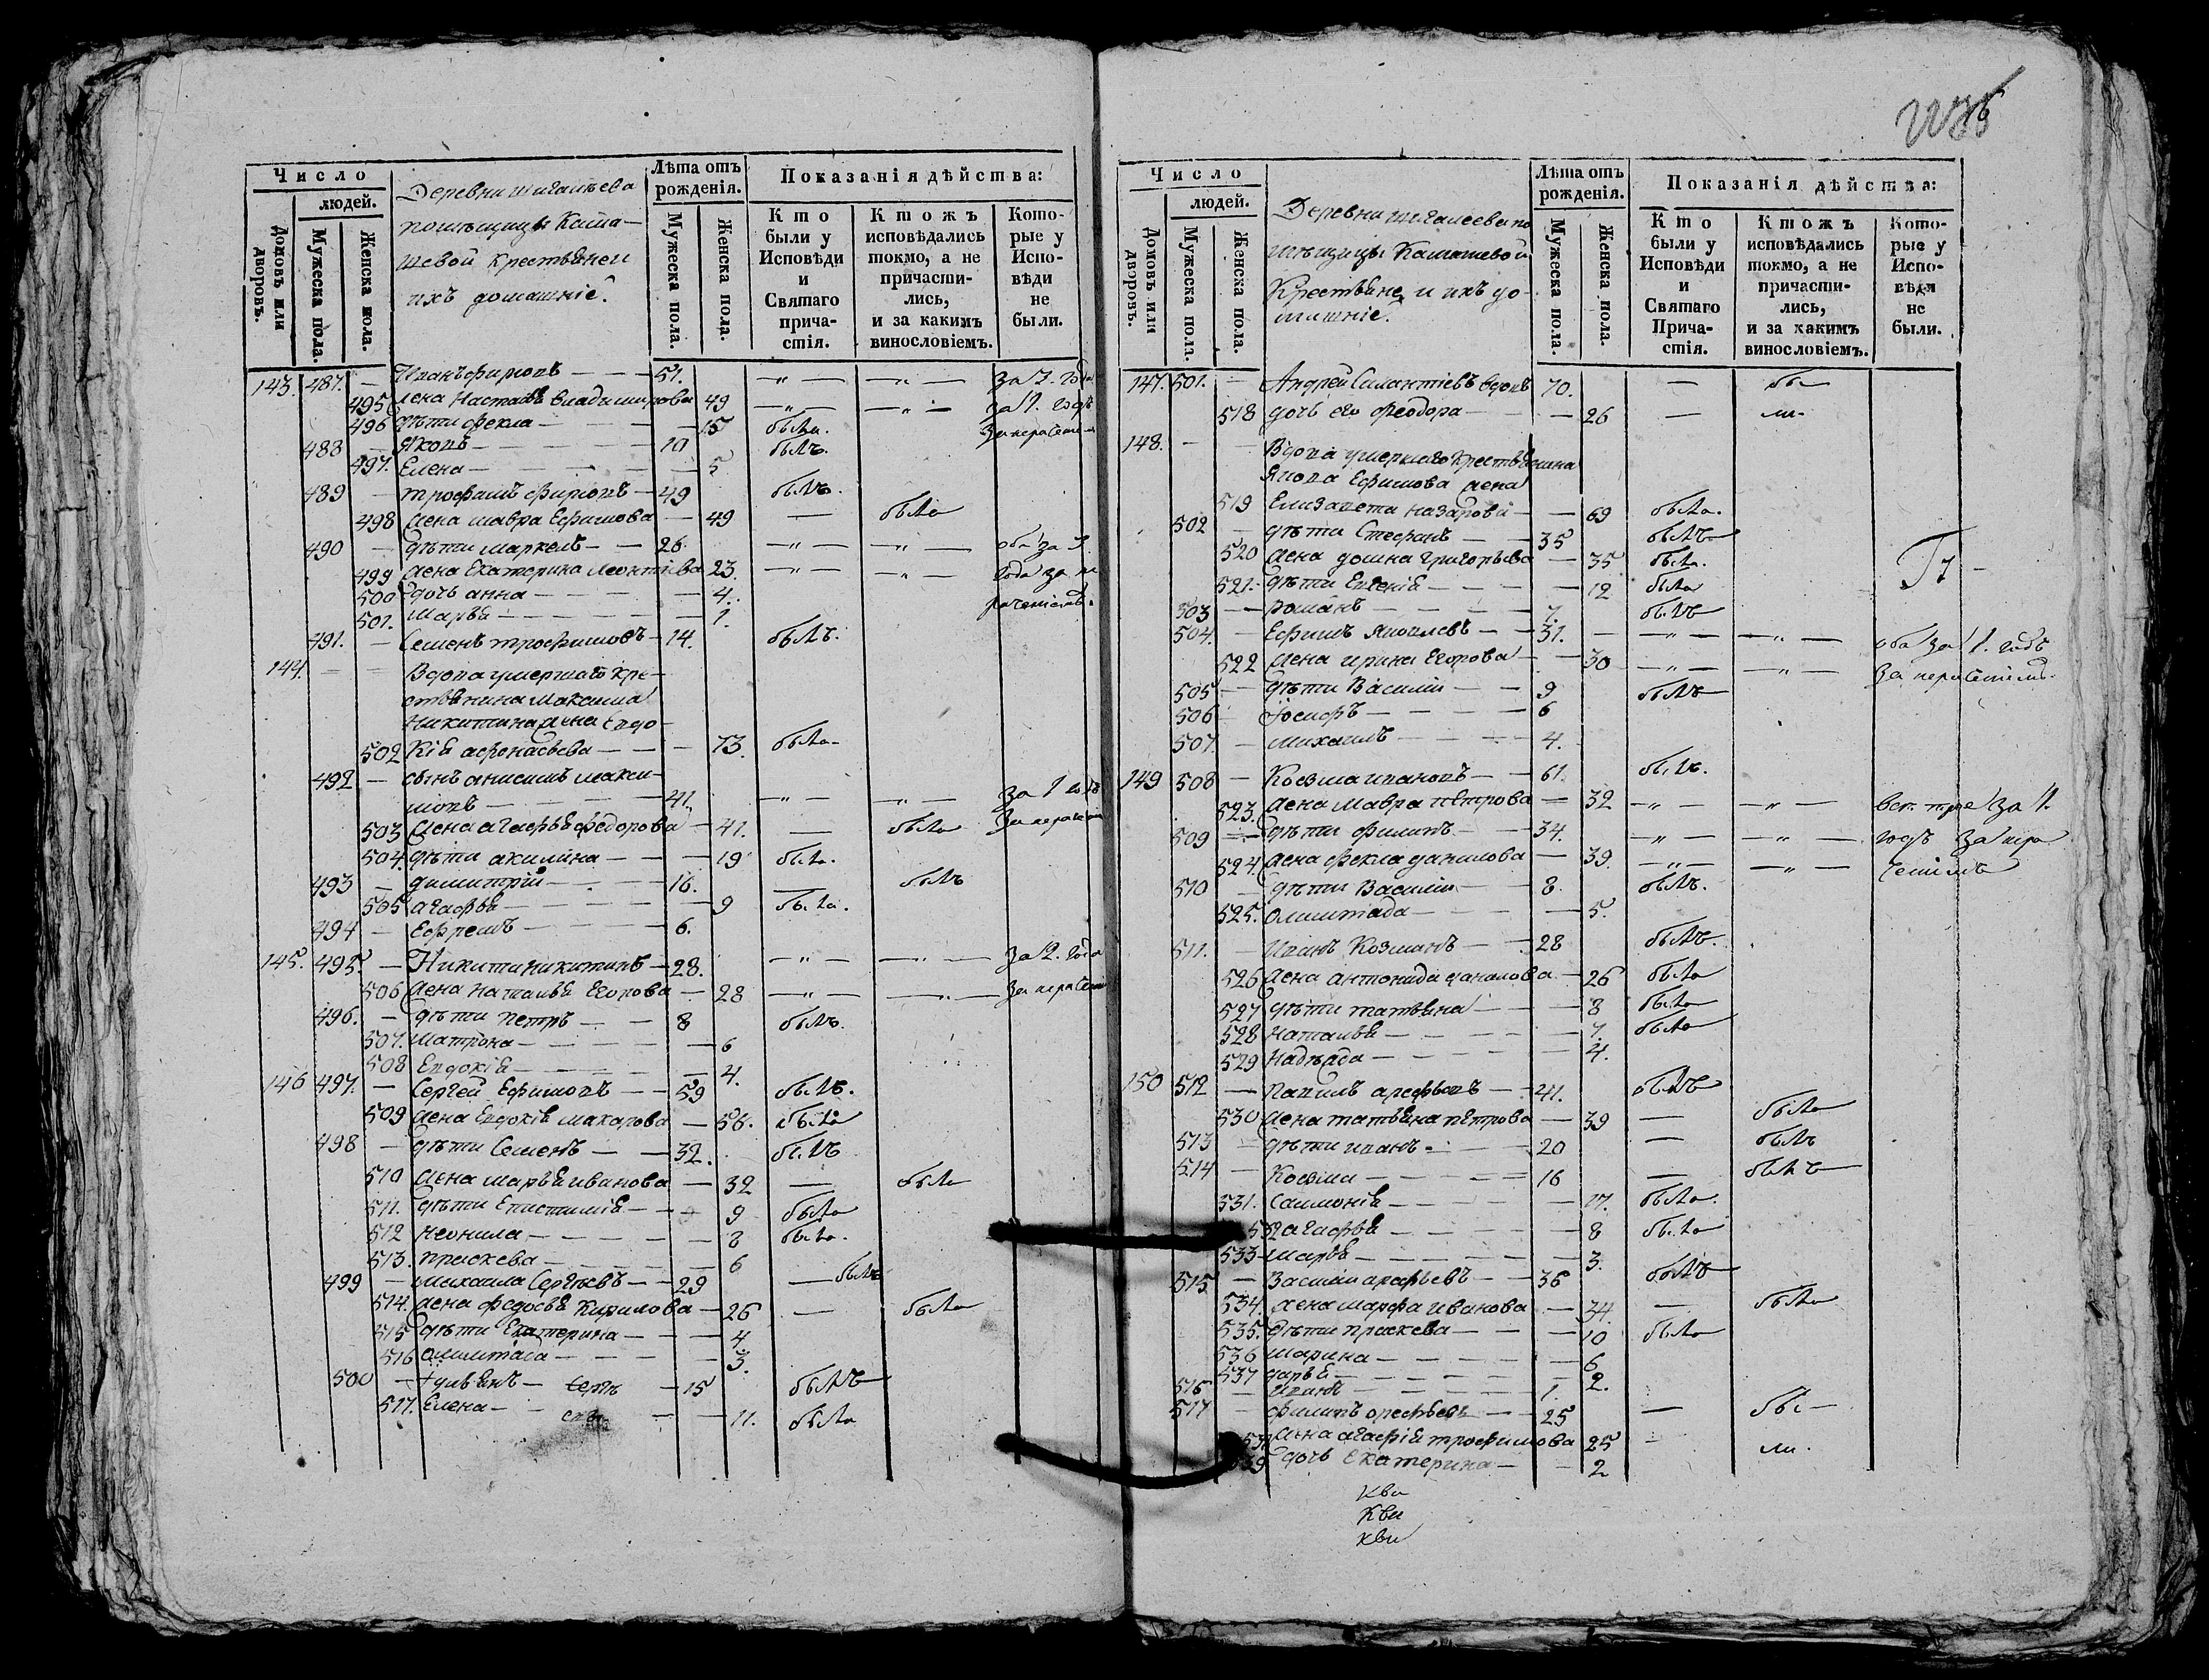 Число
людей.
Домовъ или дворовъ.
Мужеска пола.
Женска пола.
Деревни
помѣщицы Каша-
шевой крестьяне и
ихъ домашніе.
Лѣта отъ рожденія.
Мужеска пола.
Женска пола.
Показанія дѣйства:
Кто были у Исповѣди и Святаго причастія.
Ктожъ исповѣдались токмо, а не причастились, и за какимъ винословіемъ.
Которые у Исповѣди не были.
143. 487. — Иванъ — 51. —„— —„— за 2. года
495 жена Настасья Владимирова 49 —„— —„— за 1. годъ
496 дѣти Фекла — 15 была.
488 Яковъ — 10 былъ.
497. Елена — 5
489 — Трофимъ — 49 былъ.
498 жена Мавра Ефимова — 49 — была
490 — дѣти Маркелъ — 26. —„— —„— оба за 1.
499 жена Екатерина Леонтьева 23. —„— —„— года за не
500 дочь Анна — 4.
501. Марья — 1.
491. — Семенъ Трофимовъ — 14. былъ.
144. — — Вдова умершаго кре-
стьянина Максима
Никитина жена Евдо-
502 кія Афонасьева — 73. была
492 — сынъ Анисимъ Макси-
мовъ — 41. —„— —„— за 1 годъ
503 жена Агафья Федорова — 41. — была
504. дѣти Акилина — 19 была.
493 — Димитрій — 16. былъ
505 Агафья — 9 была.
494 — Ефремъ — 6.
145. 495. — Никита Никитинъ — 28. —„— —„— за 2. года
506 жена Наталья Егорова — 28 —„— —„—
496. — дѣти Петръ — 8 былъ.
507. Матрона — 6
508 Евдокія — 4.
146 497. — Сергей Ефимовъ — 59 былъ.
509 жена Евдокія Макарова — 56. была
498 — дѣти Семенъ — 32. былъ
510 жена Марья Иванова — 32 — была
511. дѣти Епистимія — 9 была
512 Неонила — 8 была.
513. Праскева — 6
499 — Михаила Сергѣевъ — 29 — былъ
514. жена Федосья Кирилова — 26 — была
515 дѣти Екатерина — 4
516 — 3.
500 — — 15 былъ
517. Елена — 11. была
Число
людей.
Домовъ или дворовъ.
Мужеска пола.
Женска пола.
Деревни по
мѣщицы Кашашевой
Крестьяне и ихъ до-
машніе.
Лѣта отъ рожденія.
Мужеска пола.
Женска пола.
Показанія дѣйства:
Кто были у Исповѣди и Святаго Причастія.
Ктожъ исповѣдались токмо, а не причастились, и за какимъ винословіемъ.
Которые у Исповѣди не были.
147. 501. — Андрей вдовъ 70. — бы
518 дочь его Феодора — 26 — ли.
148. — Вдова умершаго крестьянина
Якова Ефимова жена
519 Елизавета Назарова — 69 была.
502 — дѣти Стефанъ — 35 былъ.
520 жена Домна Григорьева — 35 была.
521. дѣти Евгенія — 12 была
503 — Романъ — 7. былъ
504. — Ефимъ Яковлевъ — 31. —„— —„— оба за 1. годъ
522 жена Ирина Егорова — 30 —„— —„—
505 — дѣти Василій — 9 былъ
506 Іосифъ — 6
507 — Михаилъ — 4.
149 508 — Козма Ивановъ — 61. былъ.
523. жена Мавра Петрова — 32 —„— —„— все трое за 1.
509 — дѣти Филипъ — 34. —„— —„— годъ
524 жена Фекла Данилова — 39. —„— —„—
510 — дѣти Василій — 8. былъ.
525. — 5.
511. — Иванъ Козминъ — 28 былъ.
526 жена Антонида Данилова — 26 была
527 дѣти Татьяна — 8 была
528 Наталья — 7. была
529 — 4.
150 512 — Павилъ Арефьевъ — 41. былъ
530 жена Татьяна Петрова — 39 — была
513 — дѣти Иванъ — 20 — былъ
514 — Козма — 16 — былъ
531. — 17. была.
532 Агафья — 8 была
533 Марья — 3.
515 — Василій Арефьевъ — 36 былъ
534. жена Марфа Иванова — 34. — была
535. дѣти Праскева — 10 была
536 Марина — 6
537 Дарья — 2.
516 — Иванъ — 1.
517 — Филипъ Орефьевъ — 25 — бы
538 жена Агафія Трофимова 25 — ли.
539 дочь Екатерина — 2